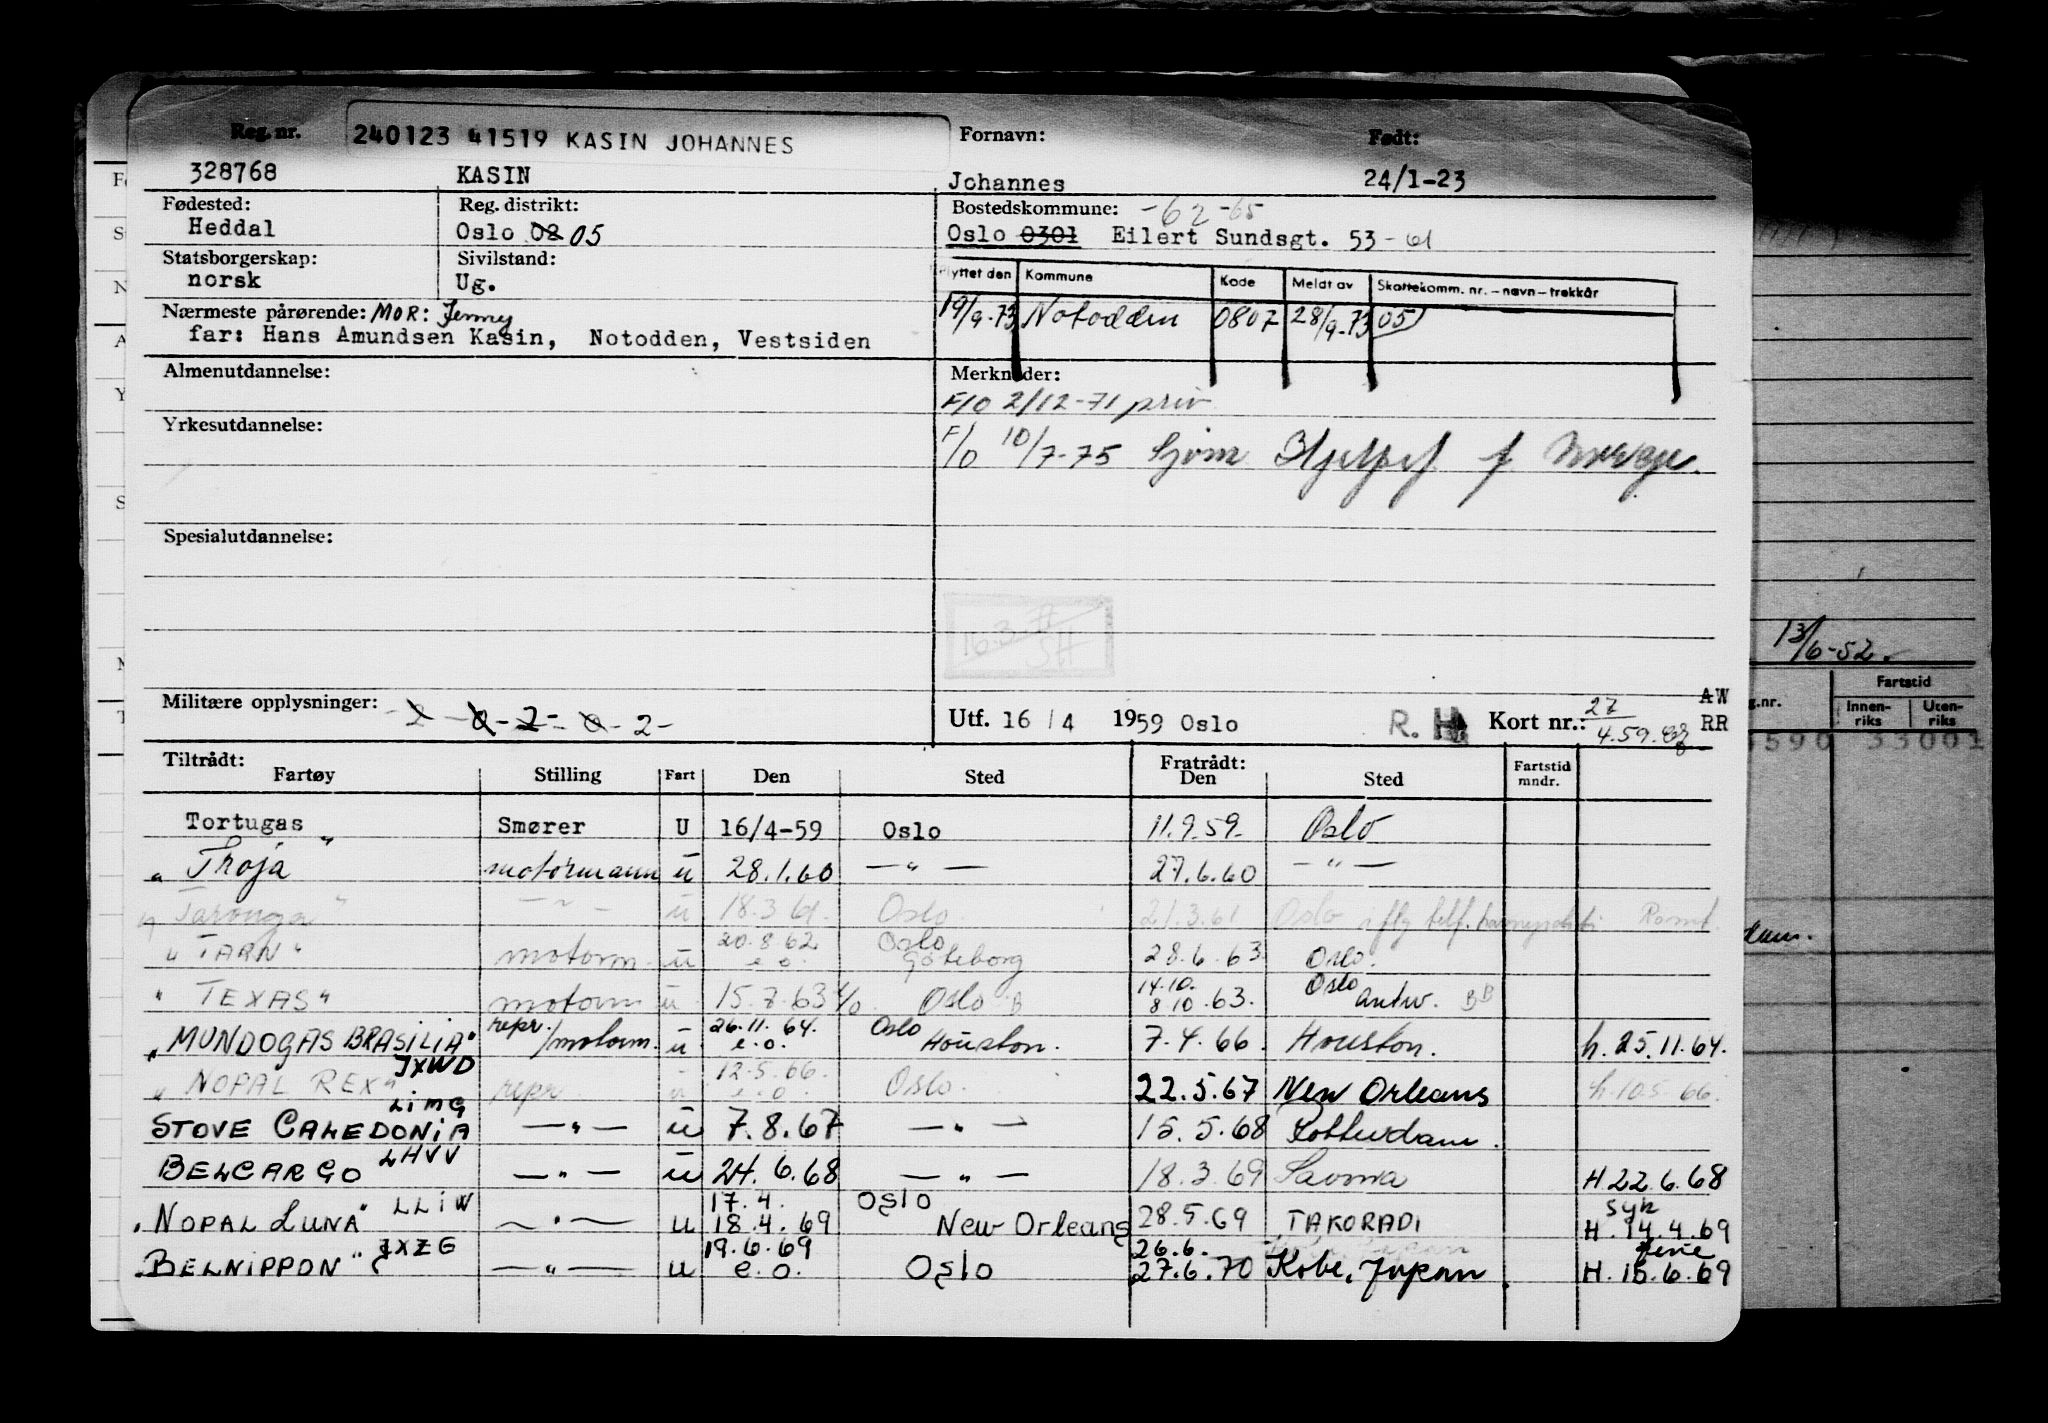 Reg. nr. 240123 41519 KASIN JOHANNES Fornavn: Født:
328768 KASIN Johannes 24/1-23
Fødested: Reg. distrikt: Bostedskommune: -62-65
Heddal Oslo 02 05 Oslo 0301 Eilert Sundsgt. 53-61
Statsborgerskap: Sivilstand:
norsk Ug.
Flyttet den Kommune Kode Meldt av Skattekomm. nr. – navn – trekkår
19/9-73 Notodden 0807 28/9-73 05
Nærmeste pårørende: MOR: Jenny
far: Hans Amundsen Kasin, Notodden, Vestsiden
Almenutdannelse: Merknader:
F/O 2/12-71 priv
Yrkesutdannelse:
F/O 10/7-75
Spesialutdannelse:
16.3
Militære opplysninger: -2-0-2-0-2-
Utf. 16/4 1959 Oslo R.H. Kort nr.: 27/4.59. AW RR
Tiltrådt: Fratrådt:
Fartøy Stilling Fart Den Sted Den Sted Fartstid mndr.
Tortugas " Smører U 16/4-59 Oslo 11.9.59. Oslo
" Troja motormann ü 28.1.60 — " — 27.6.60 — " —
" Taronga " — " — ü 18.3.61. Oslo 21.3.61 Oslo
" TARN " motorm. ü 20.8.62 e.o. Oslo Göteborg 28.6.63 Oslo.
" TEXAS " motorm ü 15.7.63 Oslo B 14.10. 8 10.63. Oslo Antw. BB
" MUNDOGAS BRASILIA " repr./motorm. ü 26.11.64. e.o. Oslo Houston. 7.4.66. Houston. h.25.11.64.
" NOPAL REX " JXWD repr. ü 12.5.66. e.o. Oslo. 22.5.67 New Orleans h.10.5.66.
STOVE CALEDONIA LIMG — " — ü 7.8.67 — " — 15.5.68 Rotterdam.
BELCARGO LHVV — " — ü 24.6.68 — " — 18.3.69 Savona H 22.6.68
" NOPAL LUNA " LLIW — " — u 17.4. 18.4.69 Oslo New Orleans 28.5.69 TAKORADI syk H. 14.4.69
" BELNIPPON " JXZG — " — u 19.6.69 e.o. Oslo 26.6. 27.6.70 Kobe, Japan. ferie H. 15.6.69
13/6-52.
Fartstid
Innenriks Utenriks
590 33001
dam.